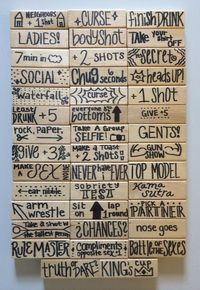 NEIGHBORS + 1 Shot
CURSE
finish DRINK
LADIES!
bodyshot
Take your shirt OFF
7 min in
+2 SHOTS
secret
SOCIAL
Chug seconds
HEADS UP!
waterfall
curse
+1 Shot
Least DRUNK +5
everyone bottoms
GIVE +5
rock, paper,
Take A Group SELFIE!
GENTS!
give +3
Make a Toast +2 Shots
GUN SHOW
MAKE A SEX NOISE
NEVER HAVE EVER
TOP MODEL
ear nibble
sobriety TEST
Kama Sutra
arm wrestle
sit on lap 1 round
PICK A PARTNER
Take a shot w/ the tallest person
¿CHANCES?
nose goes
RULE MASTER
Compliments opposite sex
Battle of the Sexes
truth or DARE?
KINGS CUP